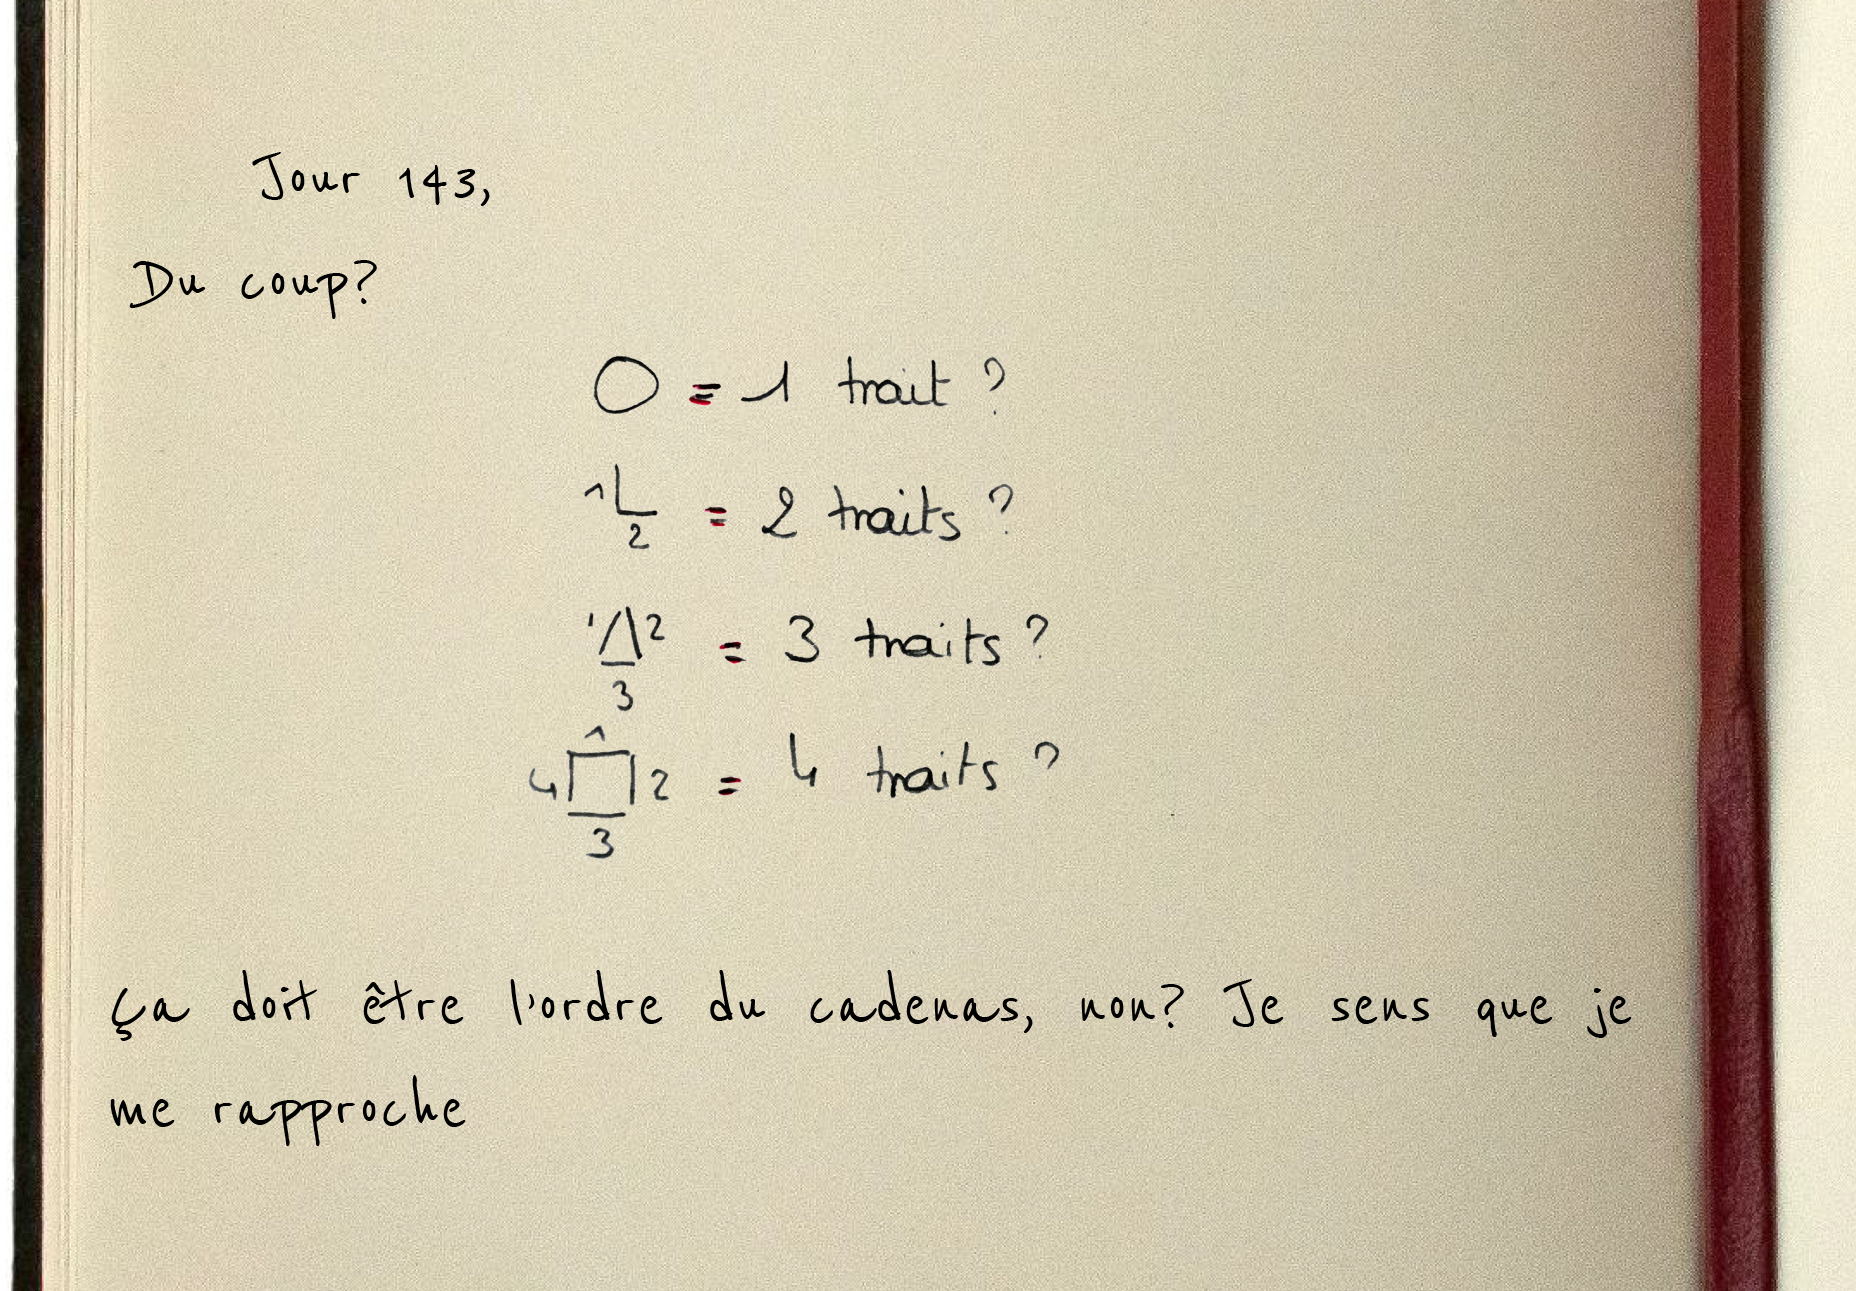 Jour 143,
Du coup?
O = 1 trait ?
1 L 2 = 2 traits ?
1 2 3 = 3 traits ?
1 2 3 4 = 4 traits ?
ça doit être l'ordre du cadenas, non? Je sens que je
me rapproche